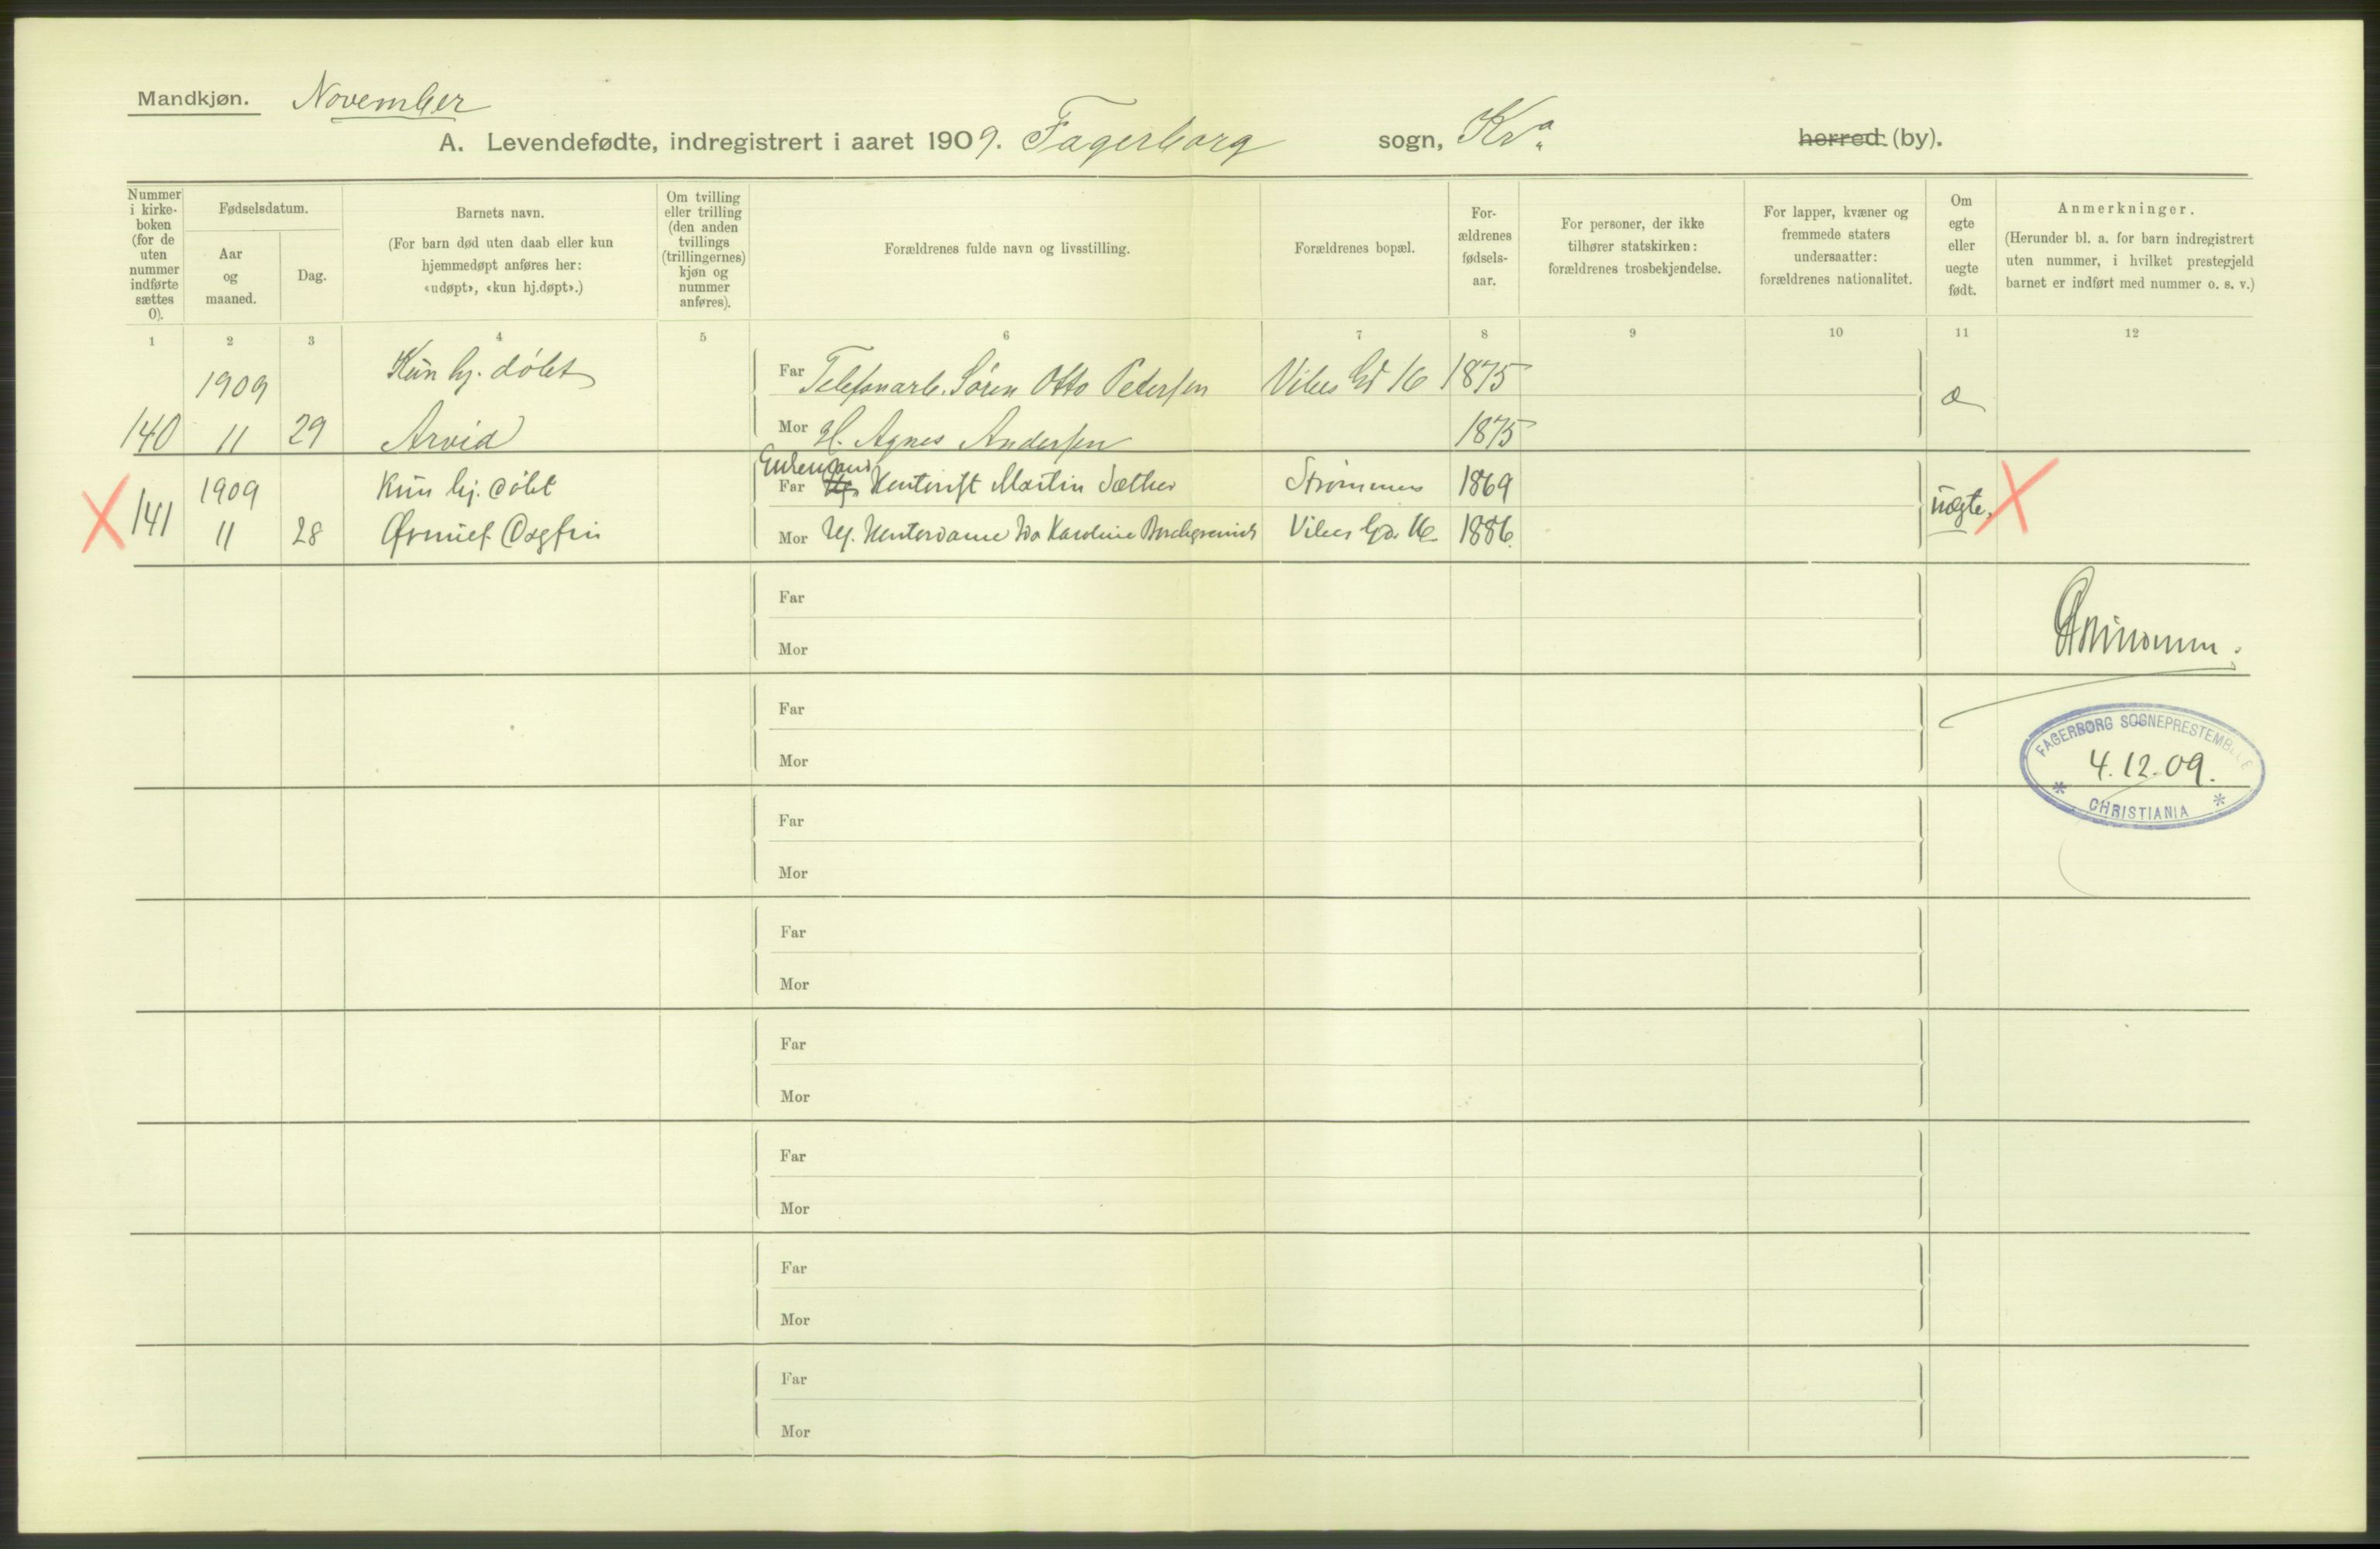 Mandkjøn. November
A. Levendefødte, indregistrert i aaret 1909. Fagerborg sogn, Kra herred (by).
Nummer i kirke-boken (for de uten nummer indførte sættes 0).
Fødselsdatum.
Aar og maaned.
Dag.
Barnets navn.
(For barn død uten daab eller kun hjemmedøpt anføres her: «udøpt», «kun hj.døpt».)
Om tvilling eller trilling (den anden tvillings (trillingernes) kjøn og nummer anføres).
Forældrenes fulde navn og livsstilling.
Forældrenes bopæl.
For-ældrenes fødsels-aar.
For personer, der ikke tilhører statskirken: forældrenes trosbekjendelse.
For lapper, kvæner og fremmede staters undersaatter: forældrenes nationalitet.
Om egte eller uegte født.
Anmerkninger.
(Herunder bl. a. for barn indregistrert uten nummer, i hvilket prestegjeld barnet er indført med nummer o. s. v.)
1 2 3 4 5 6 7 8 9 10 11 12
1909 Kun hj. døbt Far Telefonarb. Søren Otto Petersen Vibes Gd 16 1875 æ
140 11 29 Arvid Mor H. Agnes Andersen 1875
Enkemand
1909 Kun hj. døbt Far Kontorist Martin Sæther Strømmen 1869 uægte.
141 11 28 Dagfin Mor Ug. Kontordame Ida Karoline Vibes Gd. 16 1886.
Far
Mor
Far
Mor
FAGERBORG SOGNEPRESTEMBEDE
4.12.09.
CHRISTIANIA
Far
Mor
Far
Mor
Far
Mor
Far
Mor
Far
Mor
Far
Mor